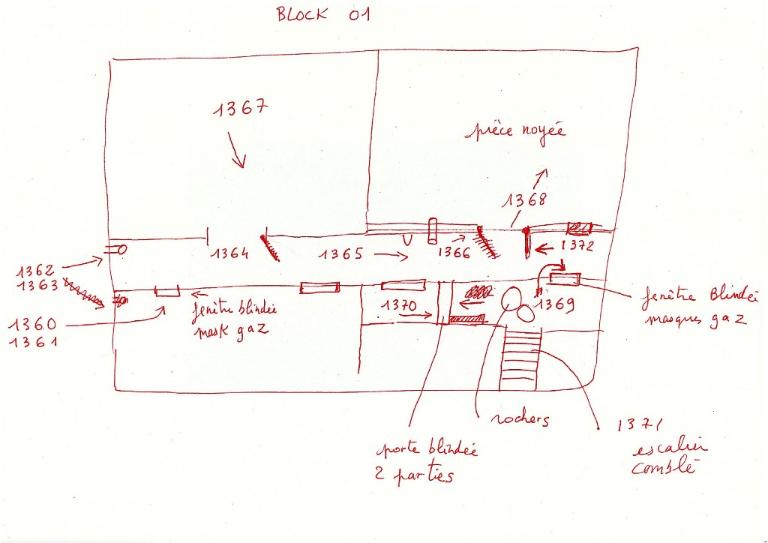 BLOCK 01
1367
pièce noyée
1368
1364
1365
1366
1372
1362
1363
fenêtre blindée
mask gaz
1370
1369
fenêtre Blindée
masques gaz
1360
1361
rochers
porte blindée
2 parties
1371
escalier
comblé